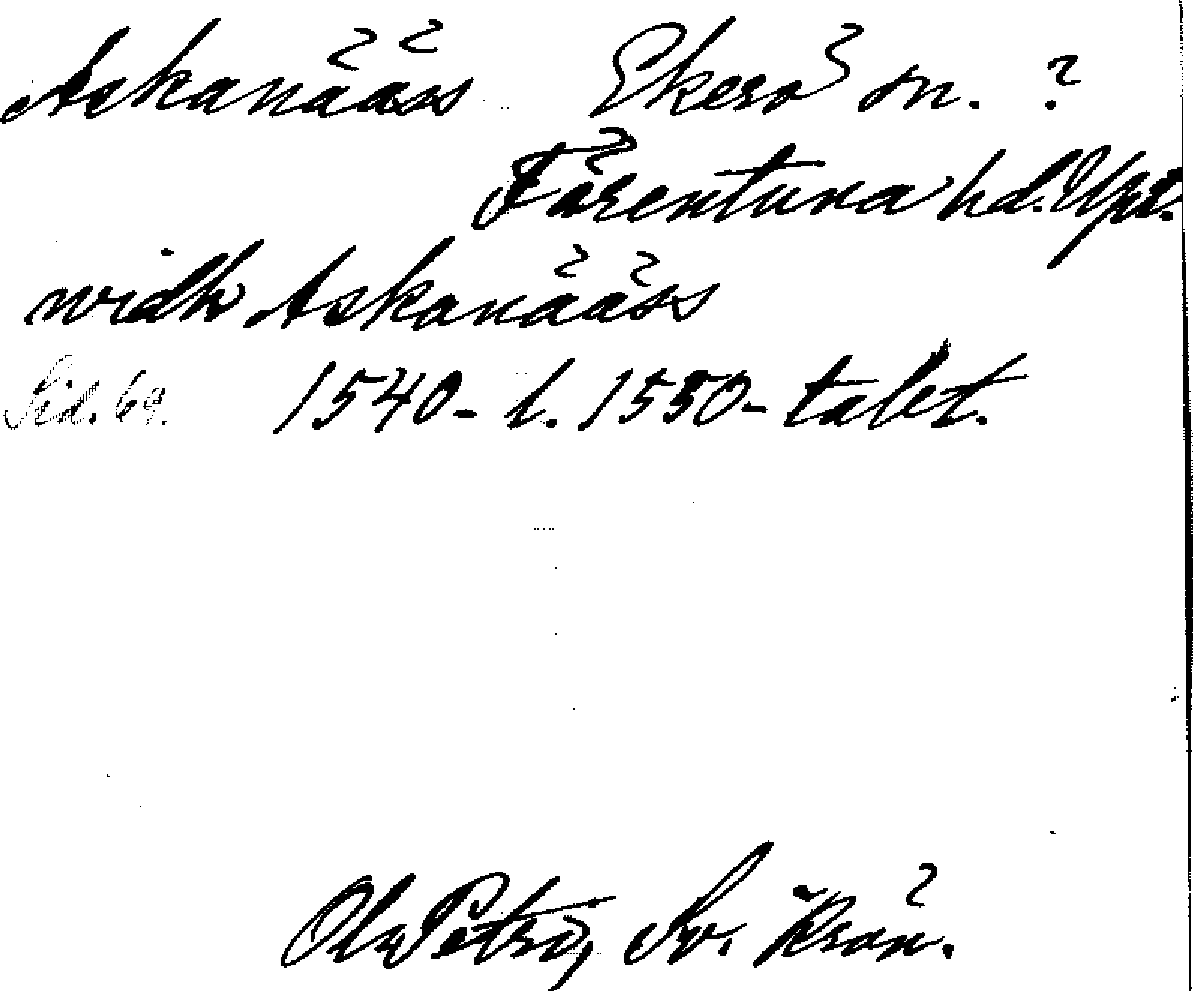 Askanääss Ekerö sn. ?
Färentuna hd. Upl.
widh Askanääss
Sid. 69. 1540- l. 1550-talet.
Ol. Petri, Sv. Krön.